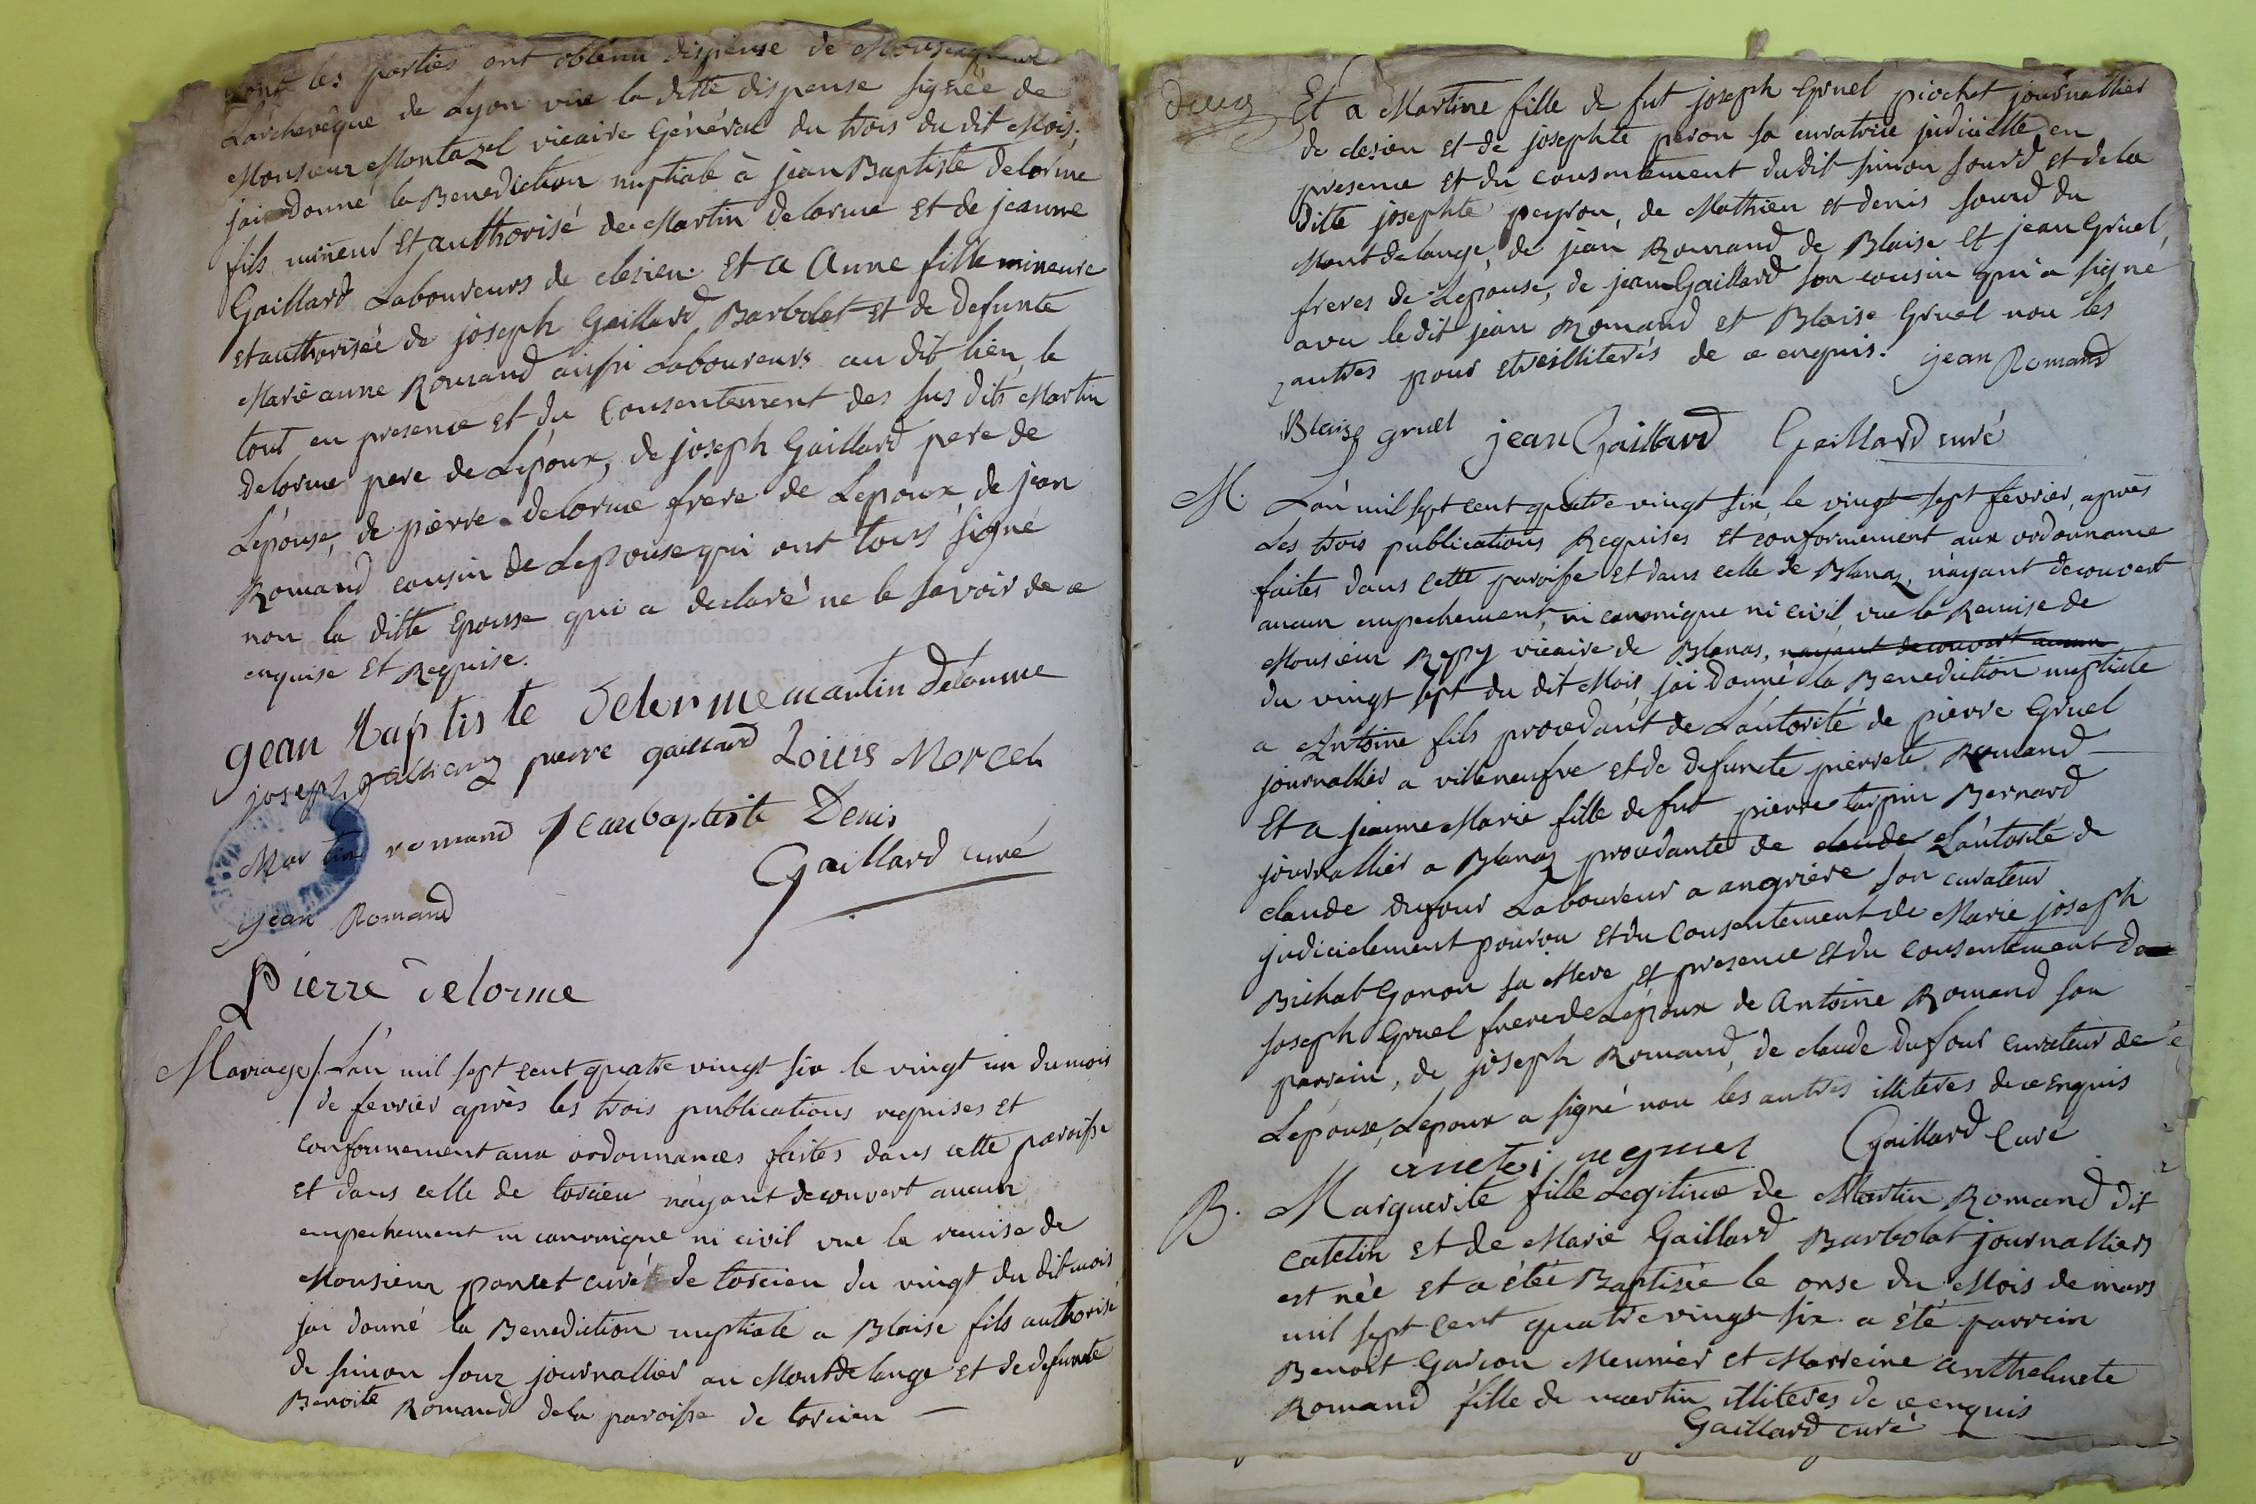 dont les parties ont obtenu dispense de Monseigneur
L'archevêque de Lyon vüe la ditte dispense signée de
Monsieur Montazel vicaire Général du trois du dit Mois.
jai donné la Benediction nuptiale à jean Baptiste Delorme
fils mineur et authorisé de Martin Delorme et de jeanne
Gaillard Laboureurs de clesieu. Et a Anne fille mineure
et authorisée de joseph Gaillard Barbolat et de defunte
Marie anne Romand aussi Laboureurs au dit lieu, le
tout en presence et du Consentement des sus dits Martin
Delorme pere de Lépoux, de joseph Gaillard pere de
Lépouse, de pierre Delorme frere de Lepoux, de jean
Romand cousin de Lepouse qui ont tous signé
non la ditte Epouse qui a declaré ne le savoir de ce
enquise et Requise.
gean baptiste delorme martin delorme
joseph pierre gaillard Louis Morcel
Martin romand jeanbaptiste Denis
Gaillard curé
jean Romand
Pierre delorme
Mariage L'an mil sept cent quatre vingt six le vingt un du mois
de fevrier après les trois publications requises et
conformement aux ordonnances faites dans cette paroisse
et dans celle de torcieu n'ayant decouvert aucun
empechement ni canonique ni civil vue la remise de
Monsieur ponset curé de torcieu du vingt du dit mois
jai donné la Benediction nuptiale a Blaise fils authorisé
de simon sour journallier au Mont de lange et de defunte
Benoite Romand de la paroisse de torcieu
deux
Et a Martine fille de fut joseph Gruel piochet journallier
de clesieu et de josephte peron sa curatrice judicielle, en
presence et du consentement du dit simon sourd et de la
ditte josephte peyron, de Mathieu et denis sourd du
Mont de lange, de jean Romand de Blaise et jean Gruel,
freres de Lepouse, de jean Gaillard son cousin qui a signé
avec le dit jean Romand et Blaise Gruel non les
autres pour etre illiterés de ce enquis. jean Romand
Blaise gruel jean Gaillard Gaillard curé
M. L'an mil sept cent quatre vingt six, le vingt sept fevrier, après
Les trois publications Requises et conformement aux ordonnance
faites dans cette paroisse et dans celle de Blanaz, n'ayant decouvert
aucun empechement, ni canonique ni civil, vue la Remise de
Monsieur Rey vicaire de Blanas, nayant decouvert aucun
du vingt sept du dit Mois jai donné la Benediction nuptiale
a Antoine fils procedant de L'autorité de pierre Gruel
journallier a villeneufve et de defuncte pierrete Romand
Et a jeanne Marie fille de fut pierre tarpin Bernard
journallier a Blanaz procedante de claude L'autorité de
claude dufour Laboureur a angrière son curateur
judicielement pourvu et du Consentement de Marie joseph
Bichat Gonon sa Mere et presence et du consentement de
joseph Gruel frere de Lépoux de Antoine Romand son
parrein, de joseph Romand, de claude Dufour curateur de
Lépouse, Lepoux a signé non les autres illiteres de ce enquis
Gaillard Curé
B. Marguerite fille Legitime de Martin Romand dit
catelin et de Marie Gaillard Barbolat journalliers
est née et a étéé Baptisée le onse du Mois de mars
mil sept cent quatre vingt six. a été parrein
Benoit Garion Meunier et Marreine anthelmete
Romand fille de martin illiteres de ce enquis
Gaillard curé